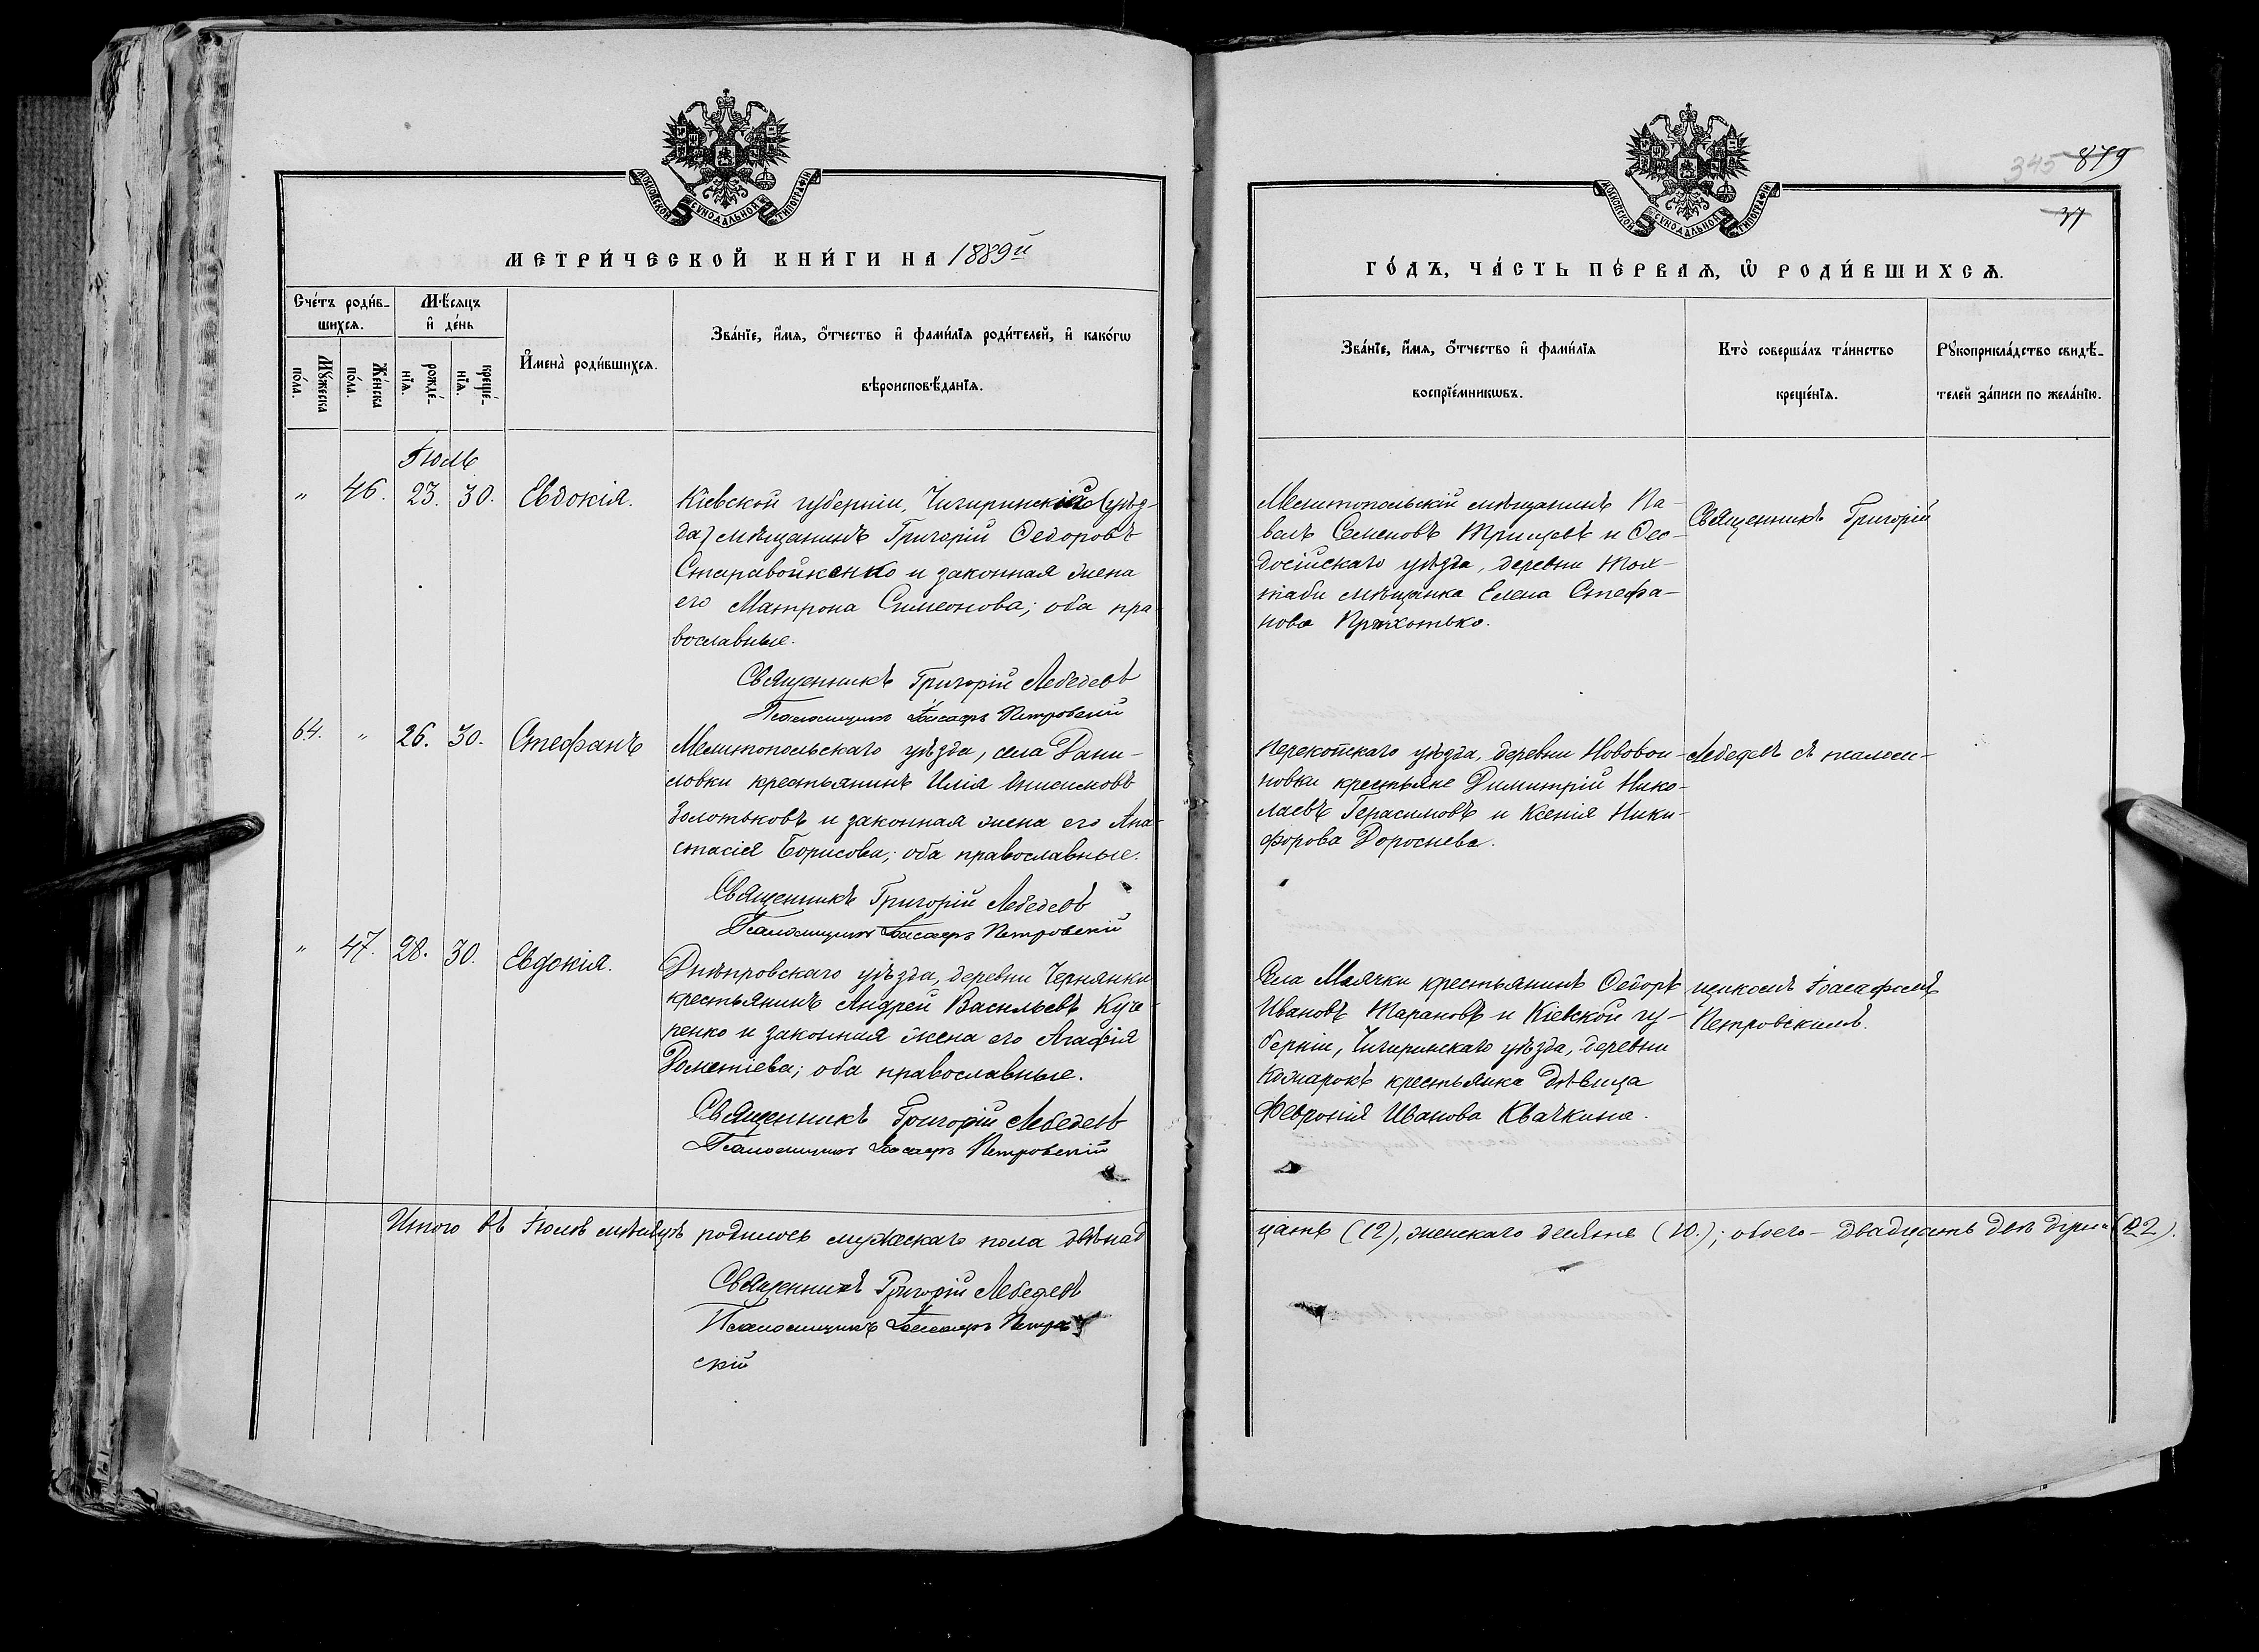 МОСКОВСКОЙ СѴНОДАЛЬНОЙ ТИПОГРАФІИ
МЕТРИ́ЧЕСКОЙ КНИ́ГИ НА 1889й
Сче́тъ роди́в-
шихсѧ.
Мѣ́сѧцъ
и҆ де́нь
Мꙋ́жеска
по́ла.
Же́нска
по́ла.
рожде́-
нїѧ.
креще́-
нїѧ.
И҆мена̀ роди́вшихсѧ.
Зва́нїе, и҆́мѧ, ѻ҆́тчество и҆ фами́лїѧ роди́телей, и҆ како́гѡ
вѣроисповѣ́данїѧ.
Іюль
" 46. 23. 30. Евдокія.
Кіевской губерніи, Чигиринскій (уѣз-
да) мѣщанинъ Григорій Ѳедоровъ
Старавойненко и законная жена
его Матрона Симеонова; оба пра-
вославные.
Священникъ Григорій Лебедевъ
Псаломщикъ Іоасафъ Петровскій
64. " 26. 30. Стефанъ
Мелитопольскаго уѣзда, села Дани-
ловки крестьянинъ Илія Анисимовъ
Золотьковъ и законная жена его Ана-
стасія Борисова; оба православные.
Священникъ Григорій Лебедевъ
Псаломщикъ Іоасафъ Петровскій
" 47. 28. 30. Евдокія.
Днѣпровскаго уѣзда, деревни Чернянки
крестьянинъ Андрей Васильевъ Куче-
ренко и законная жена его Агафія
Дометіева; оба православные.
Священникъ Григорій Лебедевъ
Псаломщикъ Іоасафъ Петровскій
Итого въ Іюлѣ мѣсяцѣ родилось мужескаго пола двѣнад
Священникъ Григорій Лебедевъ
Псаломщикъ Іоасафъ Петров
скій
345 879
37
МОСКОВСКОЙ СѴНОДАЛЬНОЙ ТИПОГРАФІИ
ГО́ДЪ, ЧА́СТЬ ПЕ́РВАѦ, Ѡ҆ РОДИ́ВШИХСѦ.
Зва́нїе, и҆́мѧ, ѻ҆́тчество и҆ фами́лїѧ
воспрїе́мникѡвъ.
Кто̀ соверша́лъ та́инство
креще́нїѧ.
Рꙋкоприкла́дство свидѣ́-
телей за́писи по жела́нїю.
Мелитопольскій мѣщанинъ Па-
велъ Семеновъ Трищевъ и Ѳео-
досійскаго уѣзда, деревни Тох-
таби мѣщанка Елена Стефа-
нова Прихотько.
Священникъ Григорій
Перекопскаго уѣзда, деревни Нововои-
новки крестьяне Димитрій Нико-
лаевъ Герасимовъ и Ксенія Ники-
форова Дороснева.
Лебедевъ съ псалом-
Села Маячки крестьянинъ Ѳедоръ
Ивановъ Тарановъ и Кіевской гу-
берніи, Чигиринскаго уѣзда, деревни
Комарокъ крестьянка дѣвица
Февронія Иванова Квачкина.
щикомъ Іоасафомъ
Петровскимъ.
цать (12), женскаго десять (10.); обоего — двадцать двѣ души (22).